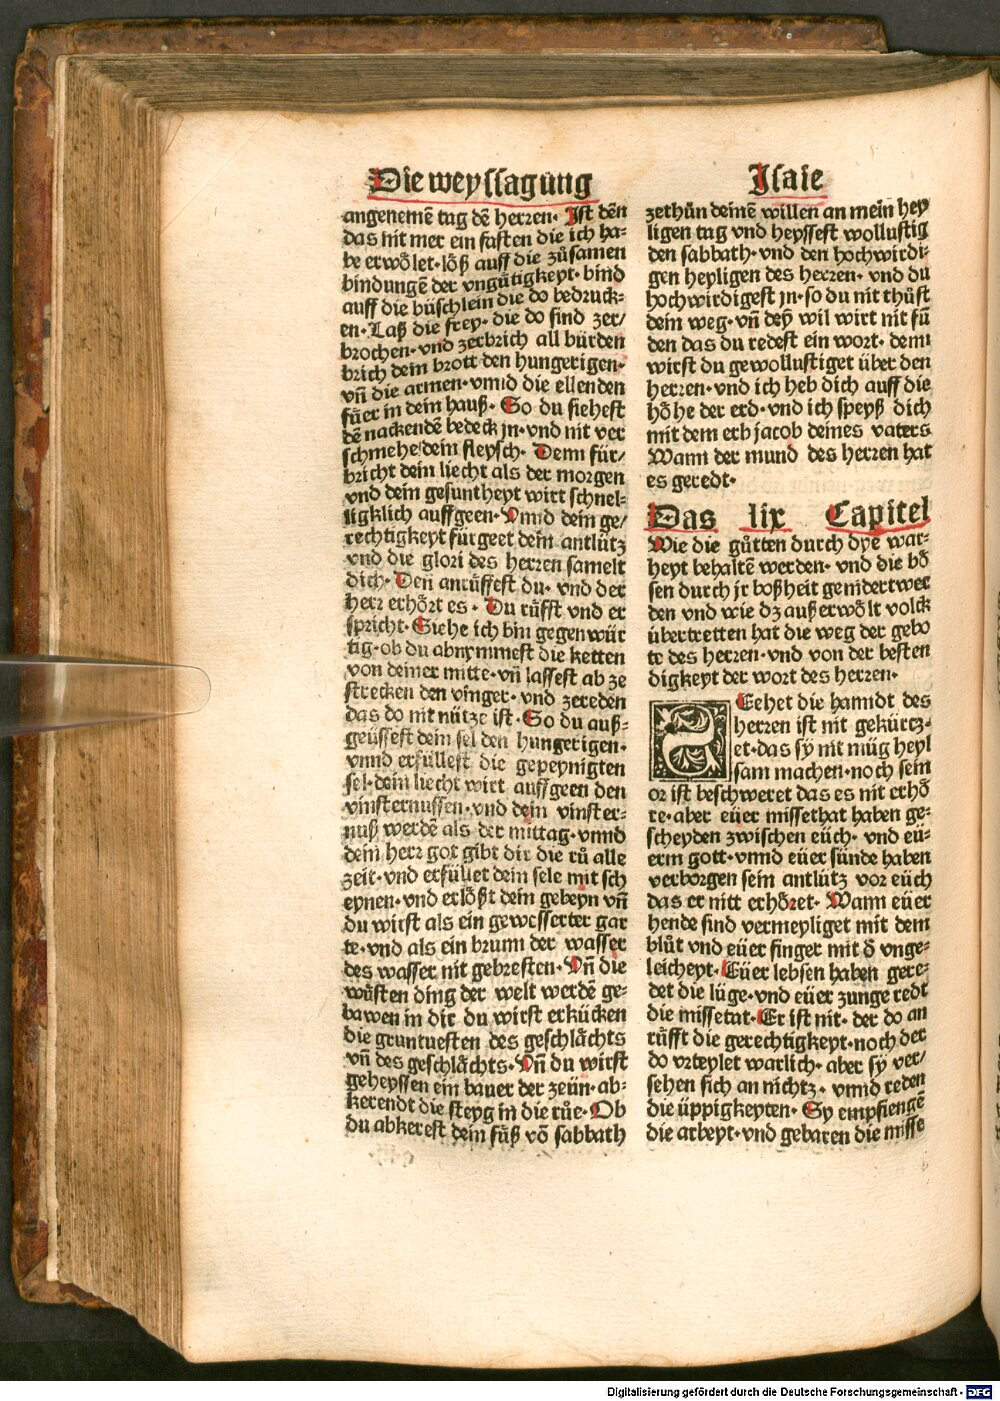 Die weyssagung
angenemē tag dē herren. Ist dēn
das nit mer ein fasten die ich ha=
be erwȯlet. lȯß auff die zůsamen
bindungē der vngůtigkeyt. bind
auff die büschlein die do bedruck=
en. Laß die frey. die do sind zer/
brochen. vnd zerbrich all bürden
brich dem brott den hungerigen.
vñ die armen. vnnd die ellenden
fůer in dein hauß. So du siehest
dē nackendē bedeck jn. vnd nit ver
schmehe dein fleysch. Denn für/
bricht dein liecht als der morgen
vnd dein gesuntheyt wirt schnel=
ligklich auffgeen. Vnnd dein ge/
rechtigkeyt fürgeet dein antlütz
vnd die glori des herren samelt
dich. Den anrůffest du. vnd der
herr erhȯrt es. Du růfft vnd er
spricht. Siehe ich bin gegenwür
tig. ob du abnymmest die ketten
von deiner mitte. vñ lassest ab ze
strecken den vinger. vnd zereden
das do nit nütze ist. So du auß=
geüssest dein sel den hungerigen.
vnnd erfüllest die gepeynigten
sel. dein liecht wirt auffgeen den
vinsternussen. vnd dein vinster=
nuß werdē als der mittag. vnnd
dein herr got gibt dir die rů alle
zeit. vnd erfüllet dein sele mit sch
eynen. vnd erlȯßt dein gebeyn vñ
du wirst als ein gewesserter gar
te. vnd als ein brunn der wasser
des wasser nit gebresten. Vñ die
wůsten ding der welt werdē ge=
bawen in dir du wirst erkücken
die gruntuesten des geschlächts
vñ des geschlächts. Vñ du wirst
geheyssen ein bauer der zeün. ab=
kerendt die steyg in die růe. Ob
du abkerest dein fůß vō sabbath
Isaie
zethůn deinē willen an mein hey
ligen tag vnd heyssest wollustig
den sabbath. vnd den hochwirdi=
gen heyligen des herren. vnd du
hochwirdigest jn. so du nit thůst
dein weg. vñ deÿ wil wirt nit fū
den das du redest ein wort. denn
wirst du gewollustiget über den
herren. vnd ich heb dich auff die
hȯhe der erd. vnd ich speyß dich
mit dem erb jacob deines vaters
Wann der mund des herren hat
es geredt.
Das lix Capitel
Wie die gůtten durch dye war=
heyt behaltē werden. vnd die bȯ
sen durch jr boßheit gemdertwer
den vnd wie dz außerwȯlt volck
übertretten hat die weg der gebo
te des herren. vnd von der besten
digkeyt der wort des herren.
SEehet die hanndt des
herren ist nit gekürtz=
et. das sy nit müg heyl
sam machen. noch sein
or ist beschweret das es nit erhȯ
re. aber eüer missethat haben ge=
scheyden zwischen eüch. vnd eü=
erm gott. vnnd eüer sünde haben
verborgen sein antlütz vor eüch
das er nitt erhȯret. Wann eüer
hende sind vermeyliget mit dem
blůt vnd eüer finger mit ð vnge=
leicheyt. Eüer lebsen haben gere=
det die lüge. vnd eüer zunge redt
die missetat. Er ist nit. der do an
růfft die gerechtigkeyt. noch der
do vrteylet warlich. aber sy ver/
sehen sich an nichtz. vnnd reden
die üppigkeyten. Sy empfiengē
die arbeyt. vnd gebaren die misse
Digitalisierung gefördert durch die Deutsche Forschungsgemeinschaft - DFG